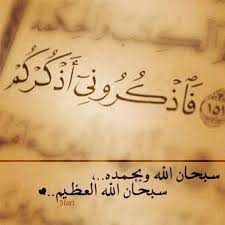 فَٱذۡكُرُونِيٓ أَذۡكُرۡكُمۡ ١٥١
سبحان الله وبحمده..،
سبحان الله العظيم..♥
3tari